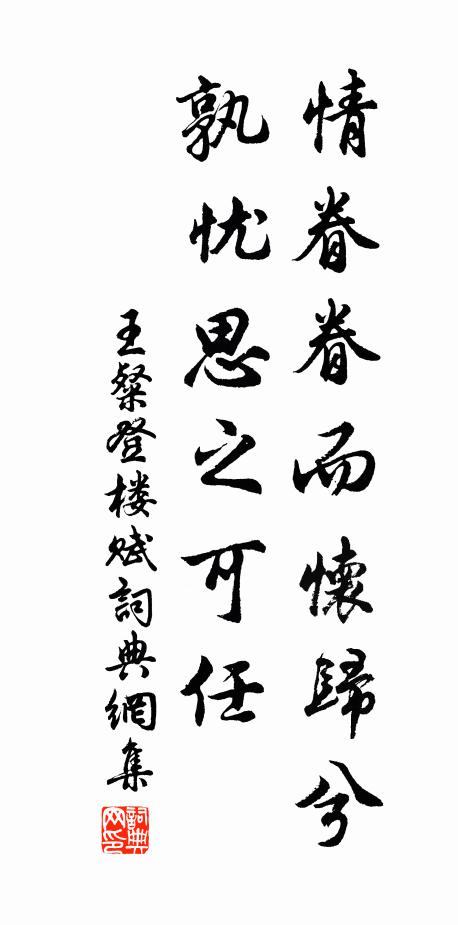 情眷眷而懷歸兮
孰忧思之可任
王粲登楼赋詞典網集
詞典网印